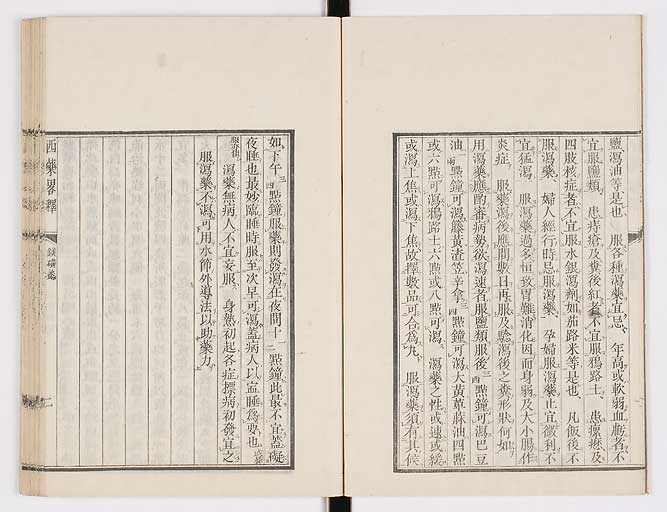 鹽瀉油等是也 服各種瀉藥宜忌 年高或軟弱血虧者不
宜服鹽類 患痔瘡及糞後紅者不宜服鴉路士 患瘰癧及
四肢核症者不宜服水銀瀉劑如茄路米等是也 凡飯後不
服瀉藥 婦人經行時忌服瀉藥 孕婦服瀉藥止宜微利不
宜猛瀉 服瀉藥過多恒致胃難消化因而身弱及大小腸作
炎症 服藥瀉後應間數日再服及驗瀉後之糞形狀何如
用瀉藥應酌審病勢欲瀉速者服鹽類服後三四點鐘可瀉巴豆
油 點鐘可瀉藤黃渣笠辛拿三四點鐘可瀉大黃萆麻油四點
或六點可瀉鴉路士六點或八點可瀉 瀉藥之性或速或緩
或瀉上焦或瀉下焦故擇數品可合為丸 服瀉藥須有其候
如下午三四點鐘服藥則發瀉在夜間十一二點鐘此最不宜蓋礙
夜睡也最妙臨睡時服至次早可瀉蓋病人以寍睡為要也
瀉藥無病人不宜妄服 身熱初起各症標病初發宜之
服瀉藥不瀉可用水節外導法以助藥力
西藥畧釋